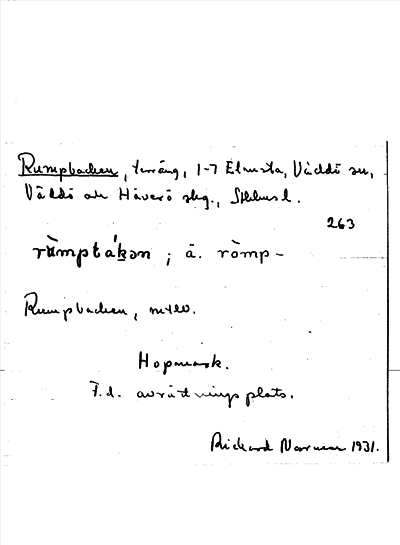 Rumpbacken, terräng, 1-7 Elmsta, Väddö sn,
Väddö och Häverö skg., Sthlms l.
263
rùmptákən; ä. ròmp-
Rumpbacken,
Hopmark.
F.d. avrättningsplats.
Rickard 1931.